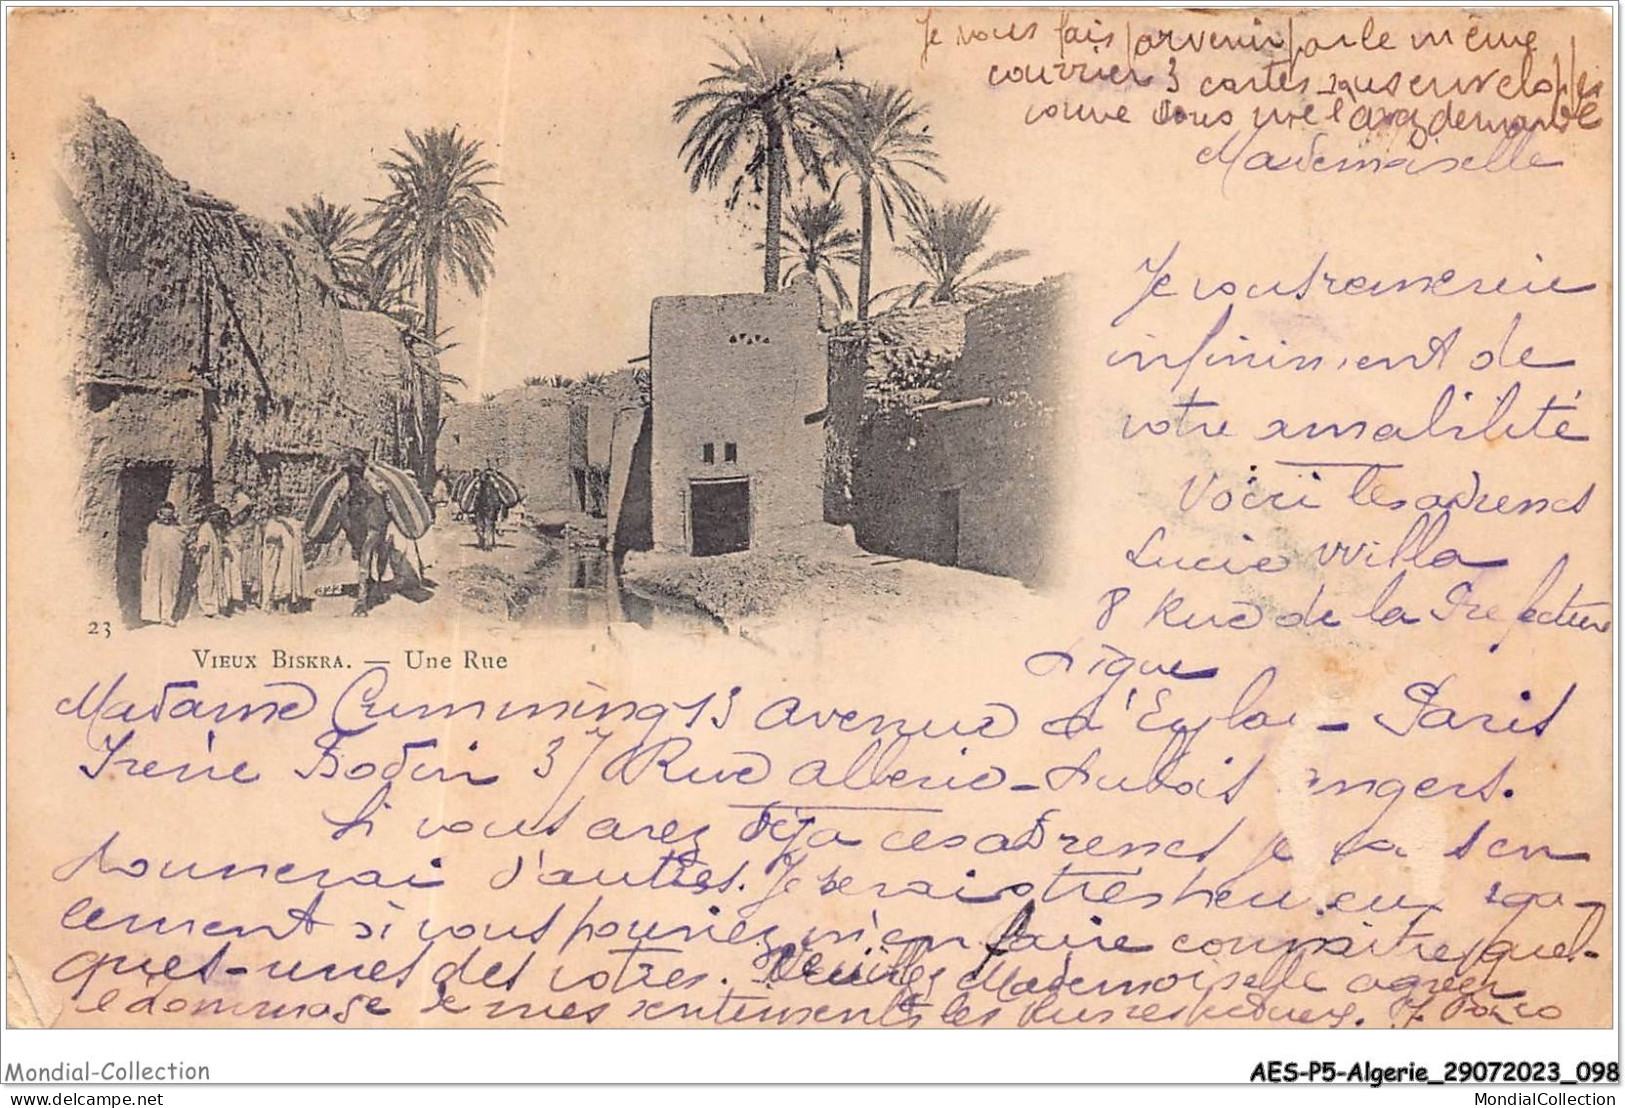 Je vous fais parvenir par le même
courrier 3 cartes sous enveloppes
comme vous me l'avez demandé
Mademoiselle
Je vous remercie
infiniment de
votre amabilité
Voici les adresses
Lucie Willa
8 Rue de la Prefecture
23
VIEUX BISKRA. — Une Rue
Madame Cumming 13 avenue d'Eylau - Paris
Irène Bodin 37 Rue - Dubois Angers.
Si vous avez déja ces adresses je vous en
donnerai d'autres. Je serais très heureux éga-
lement si vous pourriez m'en faire connaitre quel-
ques-unes des votres. Veuillez Mademoiselle agréer
l'hommage de mes sentiments les plus respectueux.
Mondial-Collection
delcampe.net
AES-P5-Algerie_29072023_098
MondialCollection